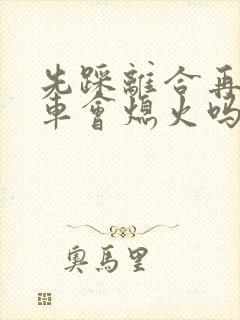 先踩離合再
車會熄火吗
奧馬里